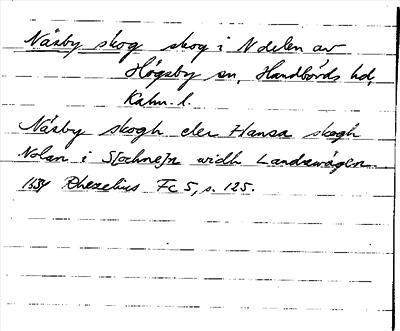 Näsby skog skog i N delen av
Högsby sn, Handbörds hd,
Kalm. l.
Näsby skogh eler Hansa skogh
Nolan i S[ochne]n widh Landzwägen
1634 Rhezelius Fc 5, s. 125.